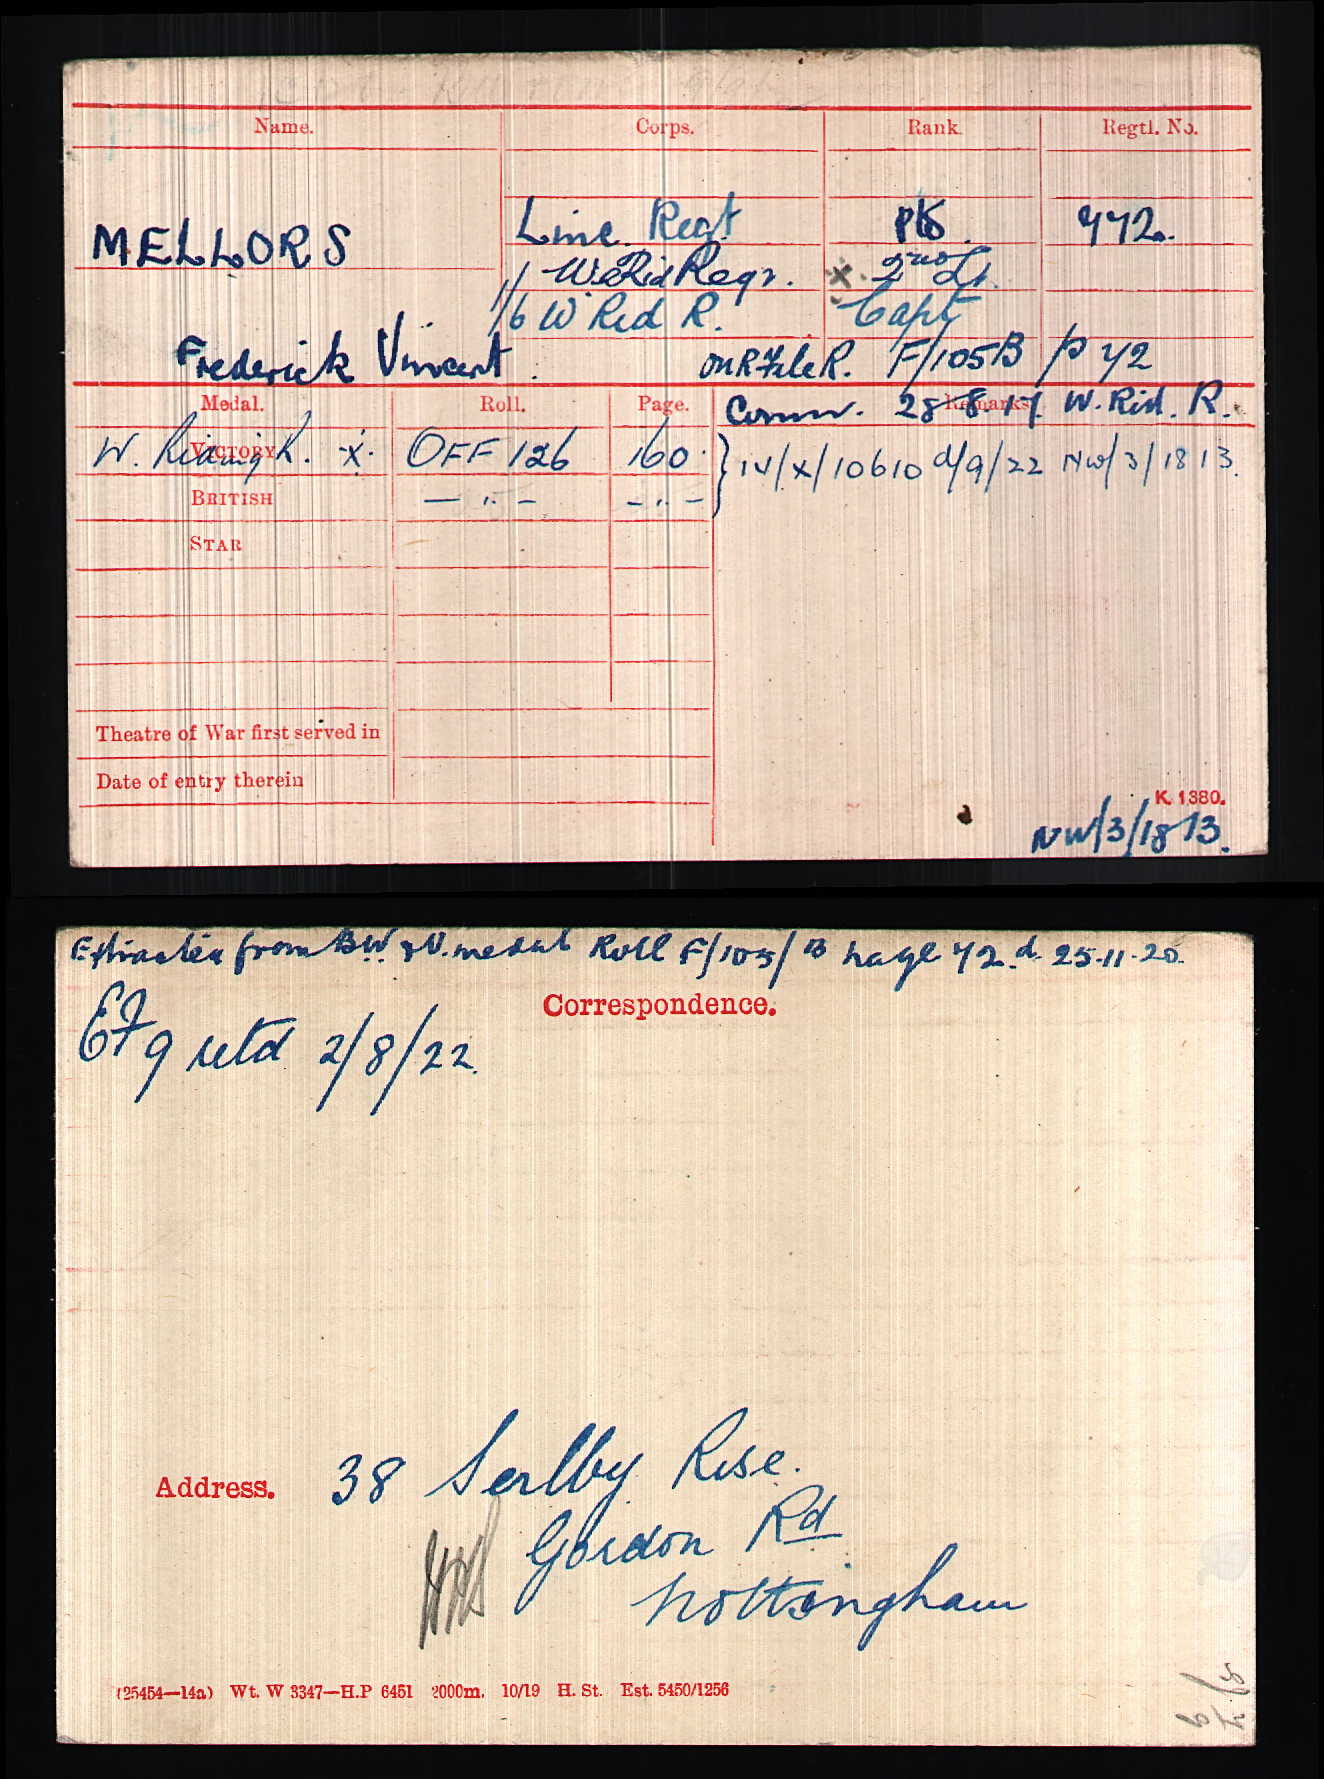 Name. Corps. Rank. Regtl. No.
MELLORS Linc. Regt Pte 442.
W. Rid Regt. X. 2nd Lt.
1/6 W Rid R. Capt
Frederick Vincent. F/105B p 42
Medal. Roll. Page. Remarks.
Comm. 28-8-17. W. Rid. R.
VICTORY W. Riding R. X. OFF 126 160. } IV/X/10610 d/9/22 NW/3/1813.
BRITISH — ,, — — ,, —
STAR
Theatre of War first served in
Date of entry therein
K. 1380.
NW/3/1813.
Extracted from BW. & V. medal Roll F/105/B page 42. d. 25.11.20.
Correspondence.
EF9 retd 2/8/22.
Address. 38 Serlby Rise.
Gordon Rd
Nottingham
(25454—14a) Wt. W 3347—H.P 6451 2000m. 10/19 H. St. Est. 5450/1256